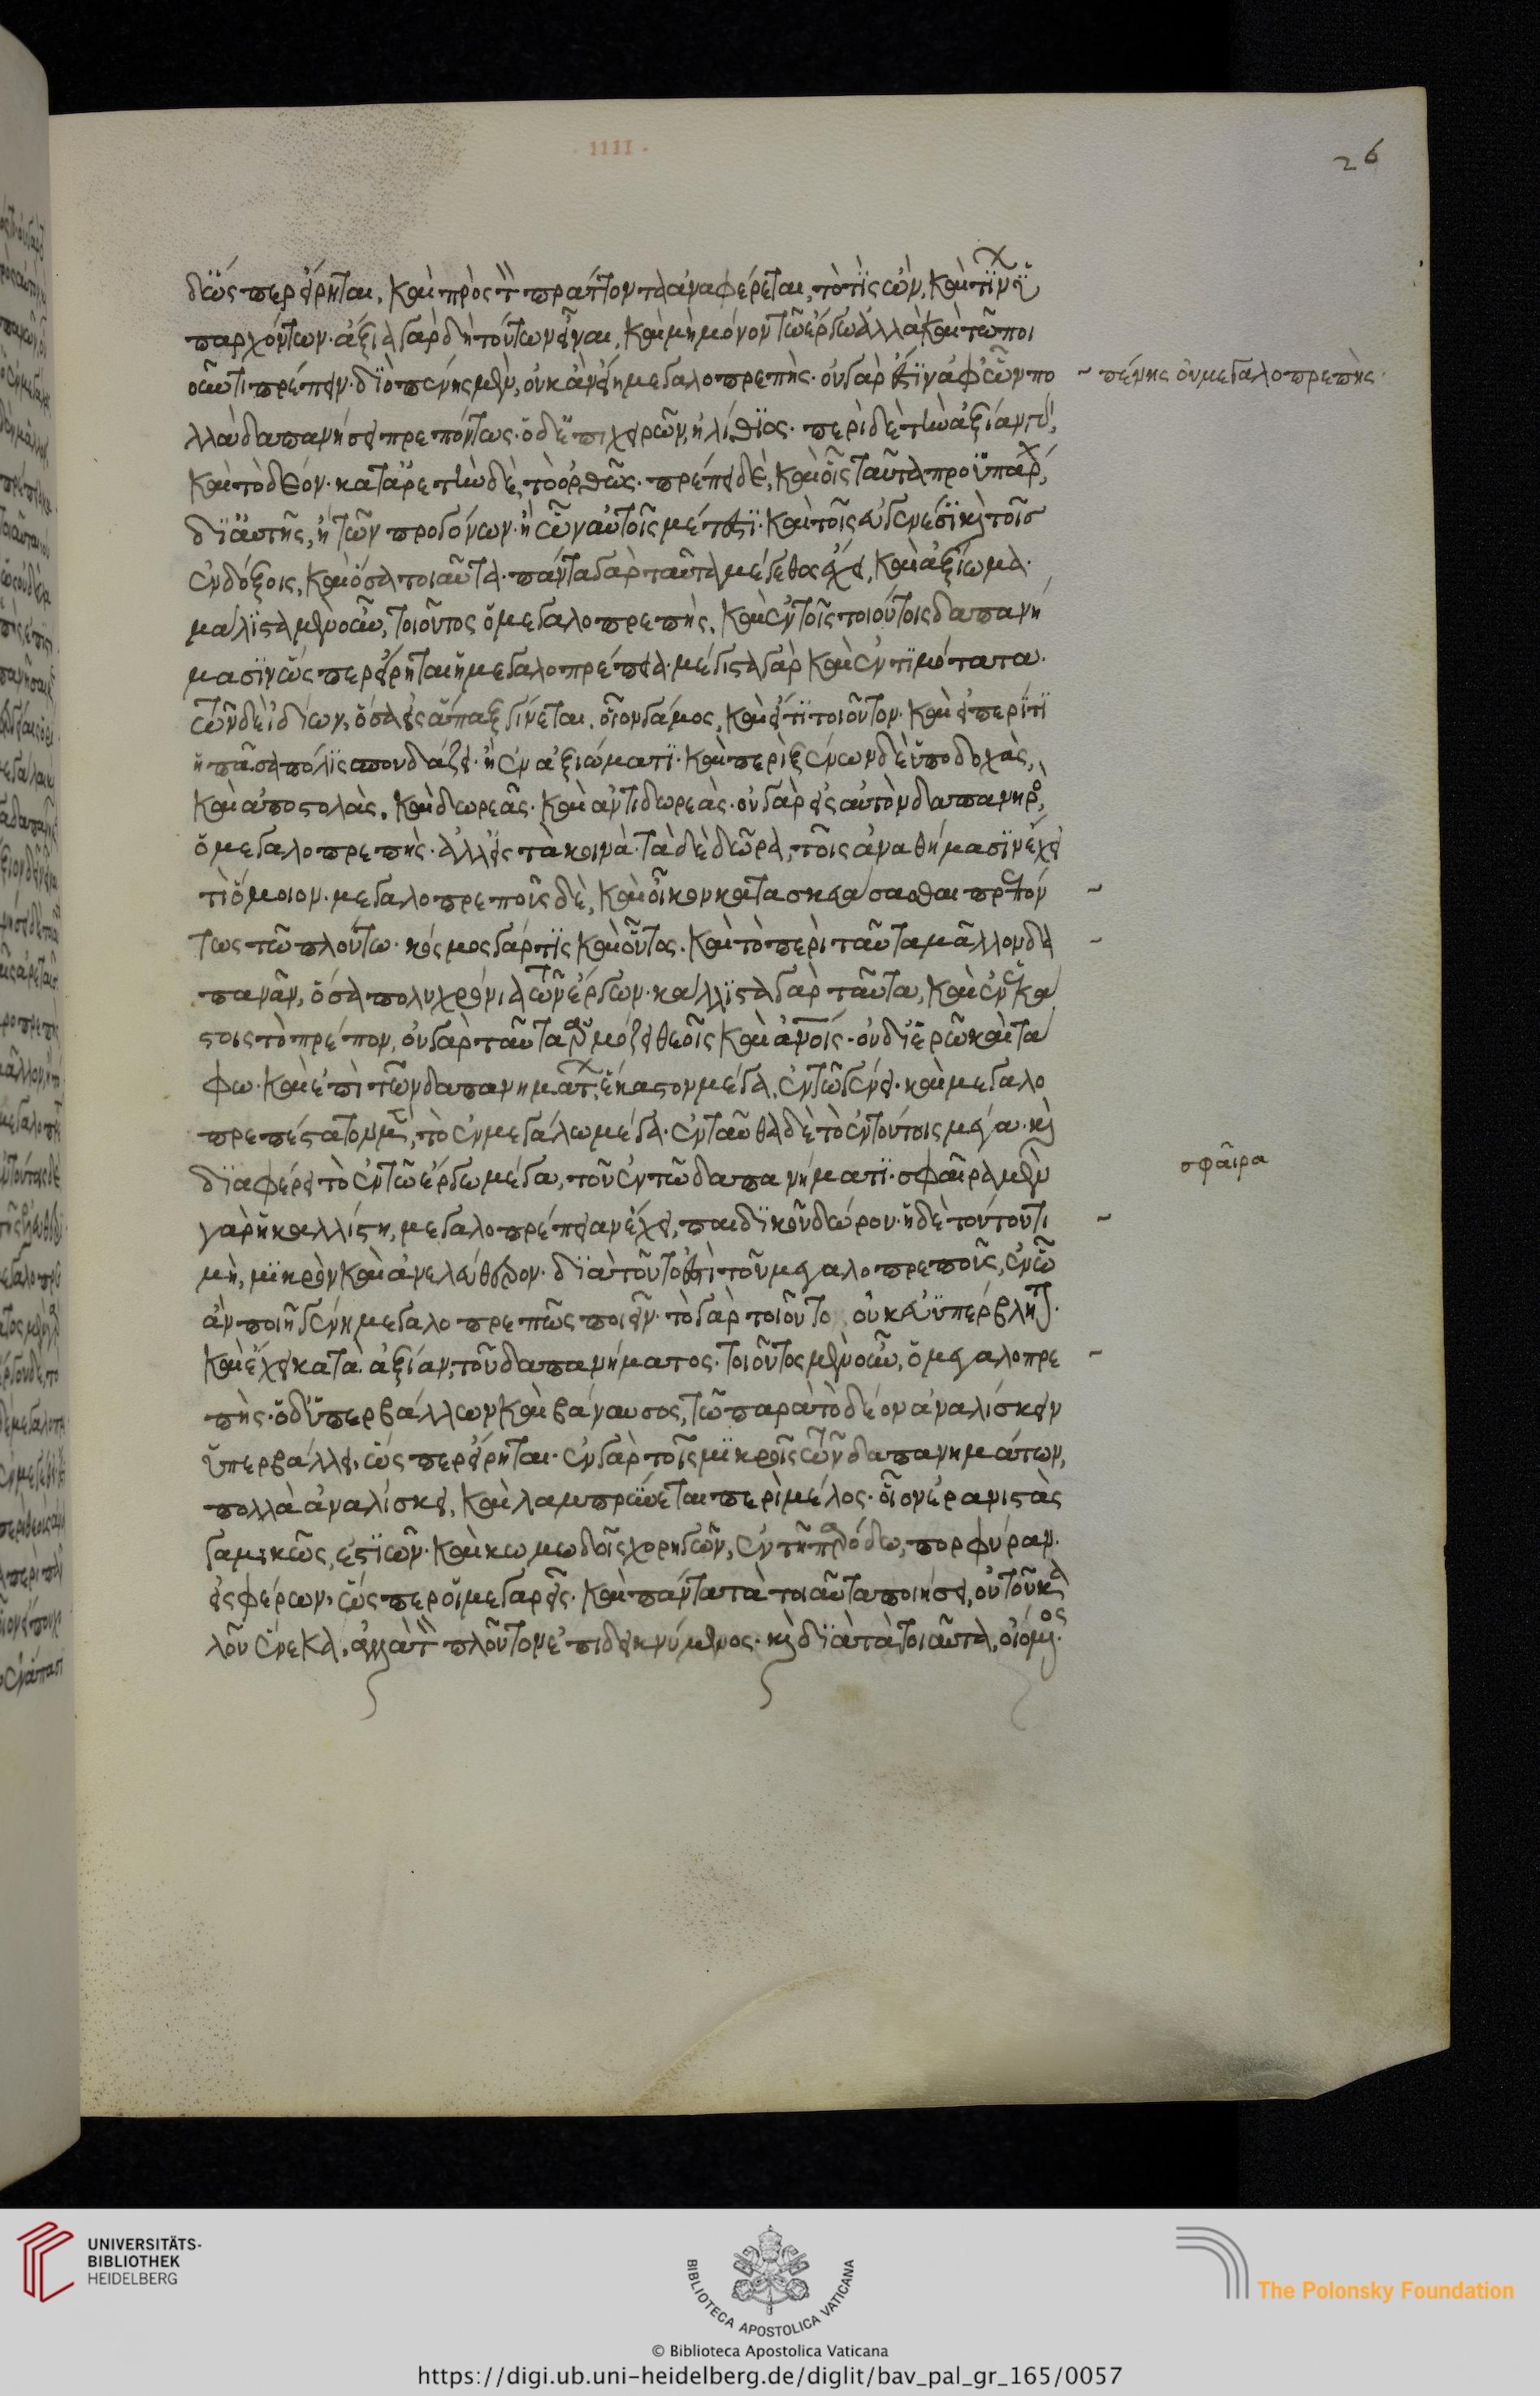 · IIII ·
26
δ' ὥσπερ εἴρηται, καὶ πρὸς τὸν πράττοντα ἀναφέρεται, τὸ τίς ὢν, καὶ τίνων ὑ
παρχόντων· ἄξια γὰρ δεῖ τούτων εἶναι, καὶ μὴ μόνον τῶ ἔργω ἀλλὰ καὶ τῶ ποι
οῦντι πρέπειν· διὸ πένης μὲν, οὐκ ἂν εἴη μεγαλοπρεπής· οὐ γὰρ ἔστιν ἀφ' ὧν πο
– πένης οὐ μεγαλοπρεπὴς·
λλὰ δαπανήσει πρεπόντως· ὁ δ' ἐπιχειρῶν, ἠλίθιος· περὶ δὲ τὴν ἀξίαν
καὶ τὸ δέον· κατ' ἀρετὴν δὲ, τὸ ὀρθῶς· πρέπει δὲ, καὶ οἷς ταῦτα προϋπάρχει
δι' αὑτῆς, ἢ τῶν προγόνων· ἢ ὧν αὐτοῖς μέτεστι· καὶ τοῖς εὐγενέσι καὶ τοῖσ
ἐνδόξοις, καὶ ὅσα τοιαῦτα· πάντα γὰρ ταῦτα μέγεθος ἔχει, καὶ ἀξίωμα·
μάλιστα μὲν οὖν, τοιοῦτος ὁ μεγαλοπρεπὴς, καὶ ἐν τοῖς τοιούτοις δαπανή
μασιν ὥσπερ εἴρηται ἡ μεγαλοπρέπεια· μέγιστα γὰρ καὶ ἐντιμότατα·
τῶν δὲ ἰδίων, ὅσα εἰς ἅπαξ γίνεται, οἷον γάμος, καὶ εἴ τι τοιοῦτον· καὶ εἰ περί τι
ἡ πᾶσα πόλις σπουδάζει· ἢ ἐν ἀξιώματι· καὶ περὶ ξένων δὲ ὑποδοχὰς,
καὶ ἀποστολὰς, καὶ δωρεὰς· καὶ ἀντιδωρεάς· οὐ γὰρ εἰς αὑτὸν δαπανηρὸς
ὁ μεγαλοπρεπὴς· ἀλλ' εἰς τὰ κοινὰ· τὰ δὲ δῶρα, τοῖς ἀναθήμασιν ἔχει
τὶ ὅμοιον· μεγαλοπρεποῦς δὲ, καὶ οἶκον κατασκευάσασθαι πρεπόν –
τως τῶ πλούτω· κόσμος γάρ τις καὶ οὗτος. καὶ τὸ περὶ ταῦτα μᾶλλον δα –
πανᾶν, ὅσα πολυχρόνια τῶν ἔργων· κάλλιστα γὰρ ταῦτα, καὶ ἐν ἑκά
στοις τὸ πρέπον, οὐ γὰρ ταῦτα ἁρμόζει θεοῖς καὶ ἀνοις· οὐδ' ἱερῶ καὶ τά
φω· καὶ ἐπὶ τῶν δαπανημάτων ἕκαστον μέγα, ἐν τῶ γένει· καὶ μεγαλο
πρεπέστατον μὲν, τὸ ἐν μεγάλω μέγα· ἐνταῦθα δὲ τὸ ἐν τούτοις μέγα· καὶ
διαφέρει τὸ ἐν τῶ ἔργω μέγα, τοῦ ἐν τῶ δαπανήματι· σφαῖρα μὲν
σφαῖρα
γὰρ ἡ καλλίστη, μεγαλοπρέπειαν ἔχει, παιδικοῦ δώρου· ἡ δὲ τούτου τι –
μὴ, μικρὸν καὶ ἀνελεύθερον· διὰ τοῦτο ἐστὶ τοῦ μεγαλοπρεποῦς, ἐν ὧ
ἂν ποιῆ γένει μεγαλοπρεπῶς ποιεῖν· τὸ γὰρ τοιοῦτο οὐκ εὐϋπέρβλητον·
καὶ ἔχει κατὰ ἀξίαν, τοῦ δαπανήματος· τοιοῦτος μὲν οὖν, ὁ μεγαλοπρε –
πής· ὁ δ' ὑπερβάλλων καὶ βάναυσος, τῶ παρὰ τὸ δέον ἀναλίσκειν
ὑπερβάλλει, ὥσπερ εἴρηται· ἐν γὰρ τοῖς μικροῖς τῶν δαπανημάτων,
πολλὰ ἀναλίσκει, καὶ λαμπρύνεται περὶ μέλος· οἷον ἐρανιστὰς
γαμικῶς, ἑστιῶν· καὶ κωμωδοῖς χορηγῶν, ἐν τῆ παρόδω, πορφύραν·
εἰσφέρων, ὥσπερ οἱ μεγαρεῖς· καὶ πάντα τὰ τοιαῦτα ποιήσει, οὐ τοῦ κα
λοῦ ἕνεκα, ἀλλὰ τὸν πλοῦτον ἐπιδεικνύμενος· καὶ διὰ τὰ τοιαῦτα, οἰόμενος
UNIVERSITÄTS-
BIBLIOTHEK
HEIDELBERG
BIBLIOTECA APOSTOLICA VATICANA
The Polonsky Foundation
© Biblioteca Apostolica Vaticana
https://digi.ub.uni-heidelberg.de/diglit/bav_pal_gr_165/0057